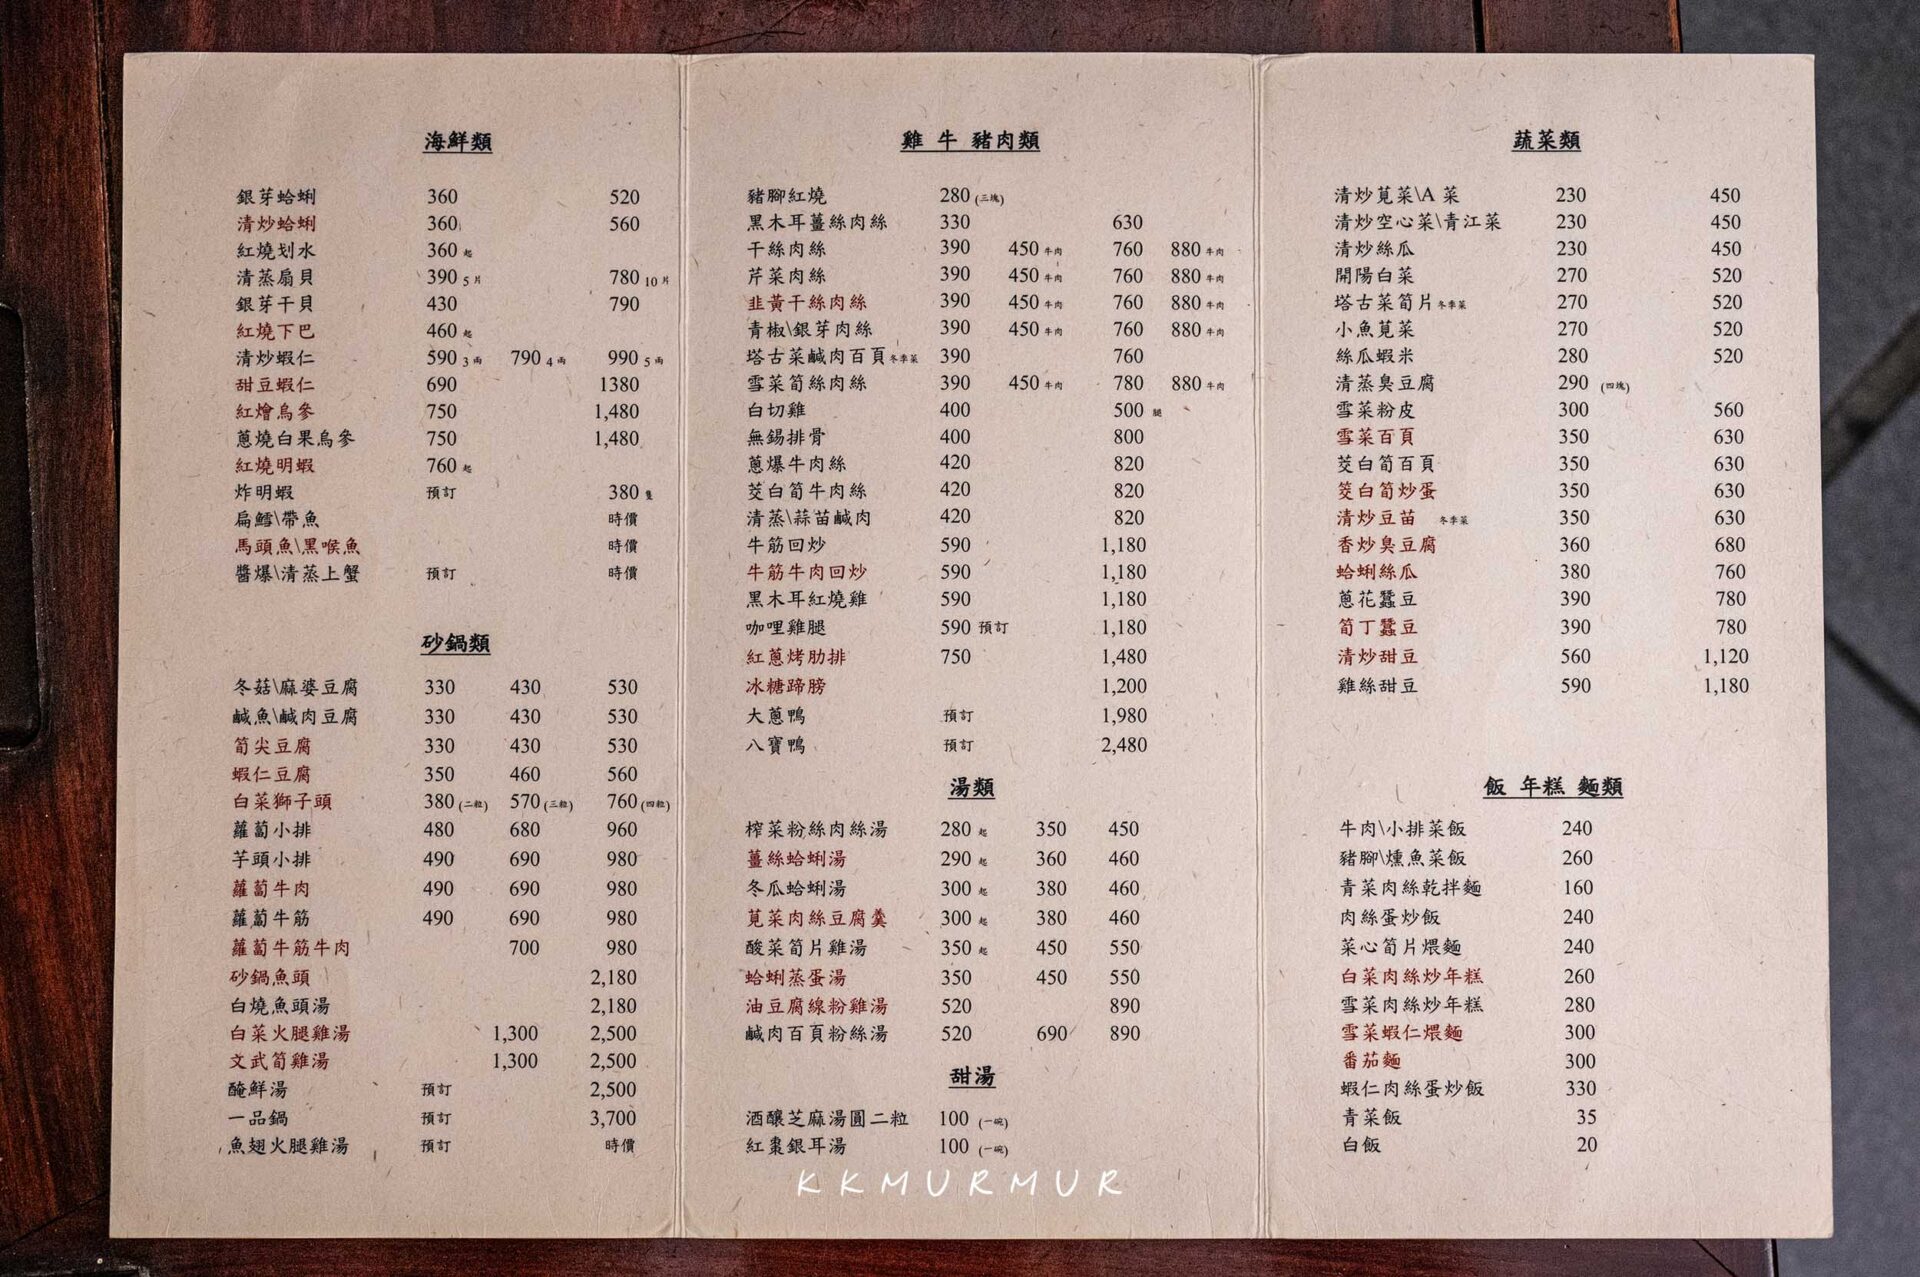 海鮮類
銀芽蛤蜊 360 520
清炒蛤蜊 360 560
紅燒划水 360 起
清蒸扇貝 390 5片 780 10片
銀芽干貝 430 790
紅燒下巴 460 起
清炒蝦仁 590 3兩 790 4兩 990 5兩
甜豆蝦仁 690 1380
紅燴烏參 750 1,480
蔥燒白果烏參 750 1,480
紅燒明蝦 760 起
炸明蝦 預訂 380 隻
扁鱈\帶魚 時價
馬頭魚\黑喉魚 時價
醬爆\清蒸上蟹 預訂 時價
砂鍋類
冬菇\麻婆豆腐 330 430 530
鹹魚\鹹肉豆腐 330 430 530
筍尖豆腐 330 430 530
蝦仁豆腐 350 460 560
白菜獅子頭 380 (二粒) 570 (三粒) 760 (四粒)
蘿蔔小排 480 680 960
芋頭小排 490 690 980
蘿蔔牛肉 490 690 980
蘿蔔牛筋 490 690 980
蘿蔔牛筋牛肉 700 980
砂鍋魚頭 2,180
白燒魚頭湯 2,180
白菜火腿雞湯 1,300 2,500
文武筍雞湯 1,300 2,500
醃鮮湯 預訂 2,500
一品鍋 預訂 3,700
魚翅火腿雞湯 預訂 時價
雞 牛 豬肉類
豬腳紅燒 280 (三塊)
黑木耳薑絲肉絲 330 630
干絲肉絲 390 450 牛肉 760 880 牛肉
芹菜肉絲 390 450 牛肉 760 880 牛肉
韭黃干絲肉絲 390 450 牛肉 760 880 牛肉
青椒\銀芽肉絲 390 450 牛肉 760 880 牛肉
塔古菜鹹肉百頁 冬季菜 390 760
雪菜筍絲肉絲 390 450 牛肉 780 880 牛肉
白切雞 400 500 腿
無錫排骨 400 800
蔥爆牛肉絲 420 820
茭白筍牛肉絲 420 820
清蒸\蒜苗鹹肉 420 820
牛筋回炒 590 1,180
牛筋牛肉回炒 590 1,180
黑木耳紅燒雞 590 1,180
咖哩雞腿 590 預訂 1,180
紅蔥烤肋排 750 1,480
冰糖蹄膀 1,200
大蔥鴨 預訂 1,980
八寶鴨 預訂 2,480
湯類
榨菜粉絲肉絲湯 280 起 350 450
薑絲蛤蜊湯 290 起 360 460
冬瓜蛤蜊湯 300 起 380 460
莧菜肉絲豆腐羹 300 起 380 460
酸菜筍片雞湯 350 起 450 550
蛤蜊蒸蛋湯 350 450 550
油豆腐線粉雞湯 520 890
鹹肉百頁粉絲湯 520 690 890
甜湯
酒釀芝麻湯圓二粒 100 (一碗)
紅棗銀耳湯 100 (一碗)
蔬菜類
清炒莧菜\A 菜 230 450
清炒空心菜\青江菜 230 450
清炒絲瓜 230 450
開陽白菜 270 520
塔古菜筍片 冬季菜 270 520
小魚莧菜 270 520
絲瓜蝦米 280 520
清蒸臭豆腐 290 (四塊)
雪菜粉皮 300 560
雪菜百頁 350 630
茭白筍百頁 350 630
筊白筍炒蛋 350 630
清炒豆苗 冬季菜 350 630
香炒臭豆腐 360 680
蛤蜊絲瓜 380 760
蔥花蠶豆 390 780
筍丁蠶豆 390 780
清炒甜豆 560 1,120
雞絲甜豆 590 1,180
飯 年糕 麵類
牛肉\小排菜飯 240
豬腳\燻魚菜飯 260
青菜肉絲乾拌麵 160
肉絲蛋炒飯 240
菜心筍片煨麵 240
白菜肉絲炒年糕 260
雪菜肉絲炒年糕 280
雪菜蝦仁煨麵 300
番茄麵 300
蝦仁肉絲蛋炒飯 330
青菜飯 35
白飯 20
KKMURMUR